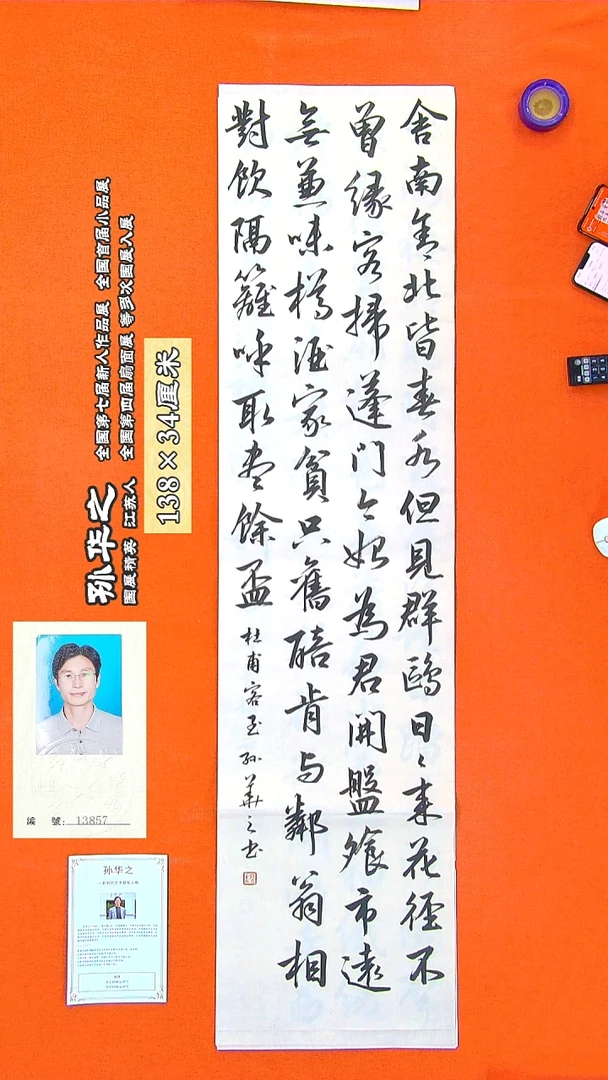 舍南舍北皆春水但見群鷗日〻来花徑不
曾緣客掃蓬門今始為君開盤飧市遠
無兼味樽酒家貧只舊醅肯与鄰翁相
對飲隔籬呼取盡餘盃 杜甫客至 孙華之书
孙华之
全國第七届新人作品展 全國首届小品展
國展精英 江苏人 全國第四届扇面展 等多次國展入展
138×34厘米
編 號: 13857
孙华之